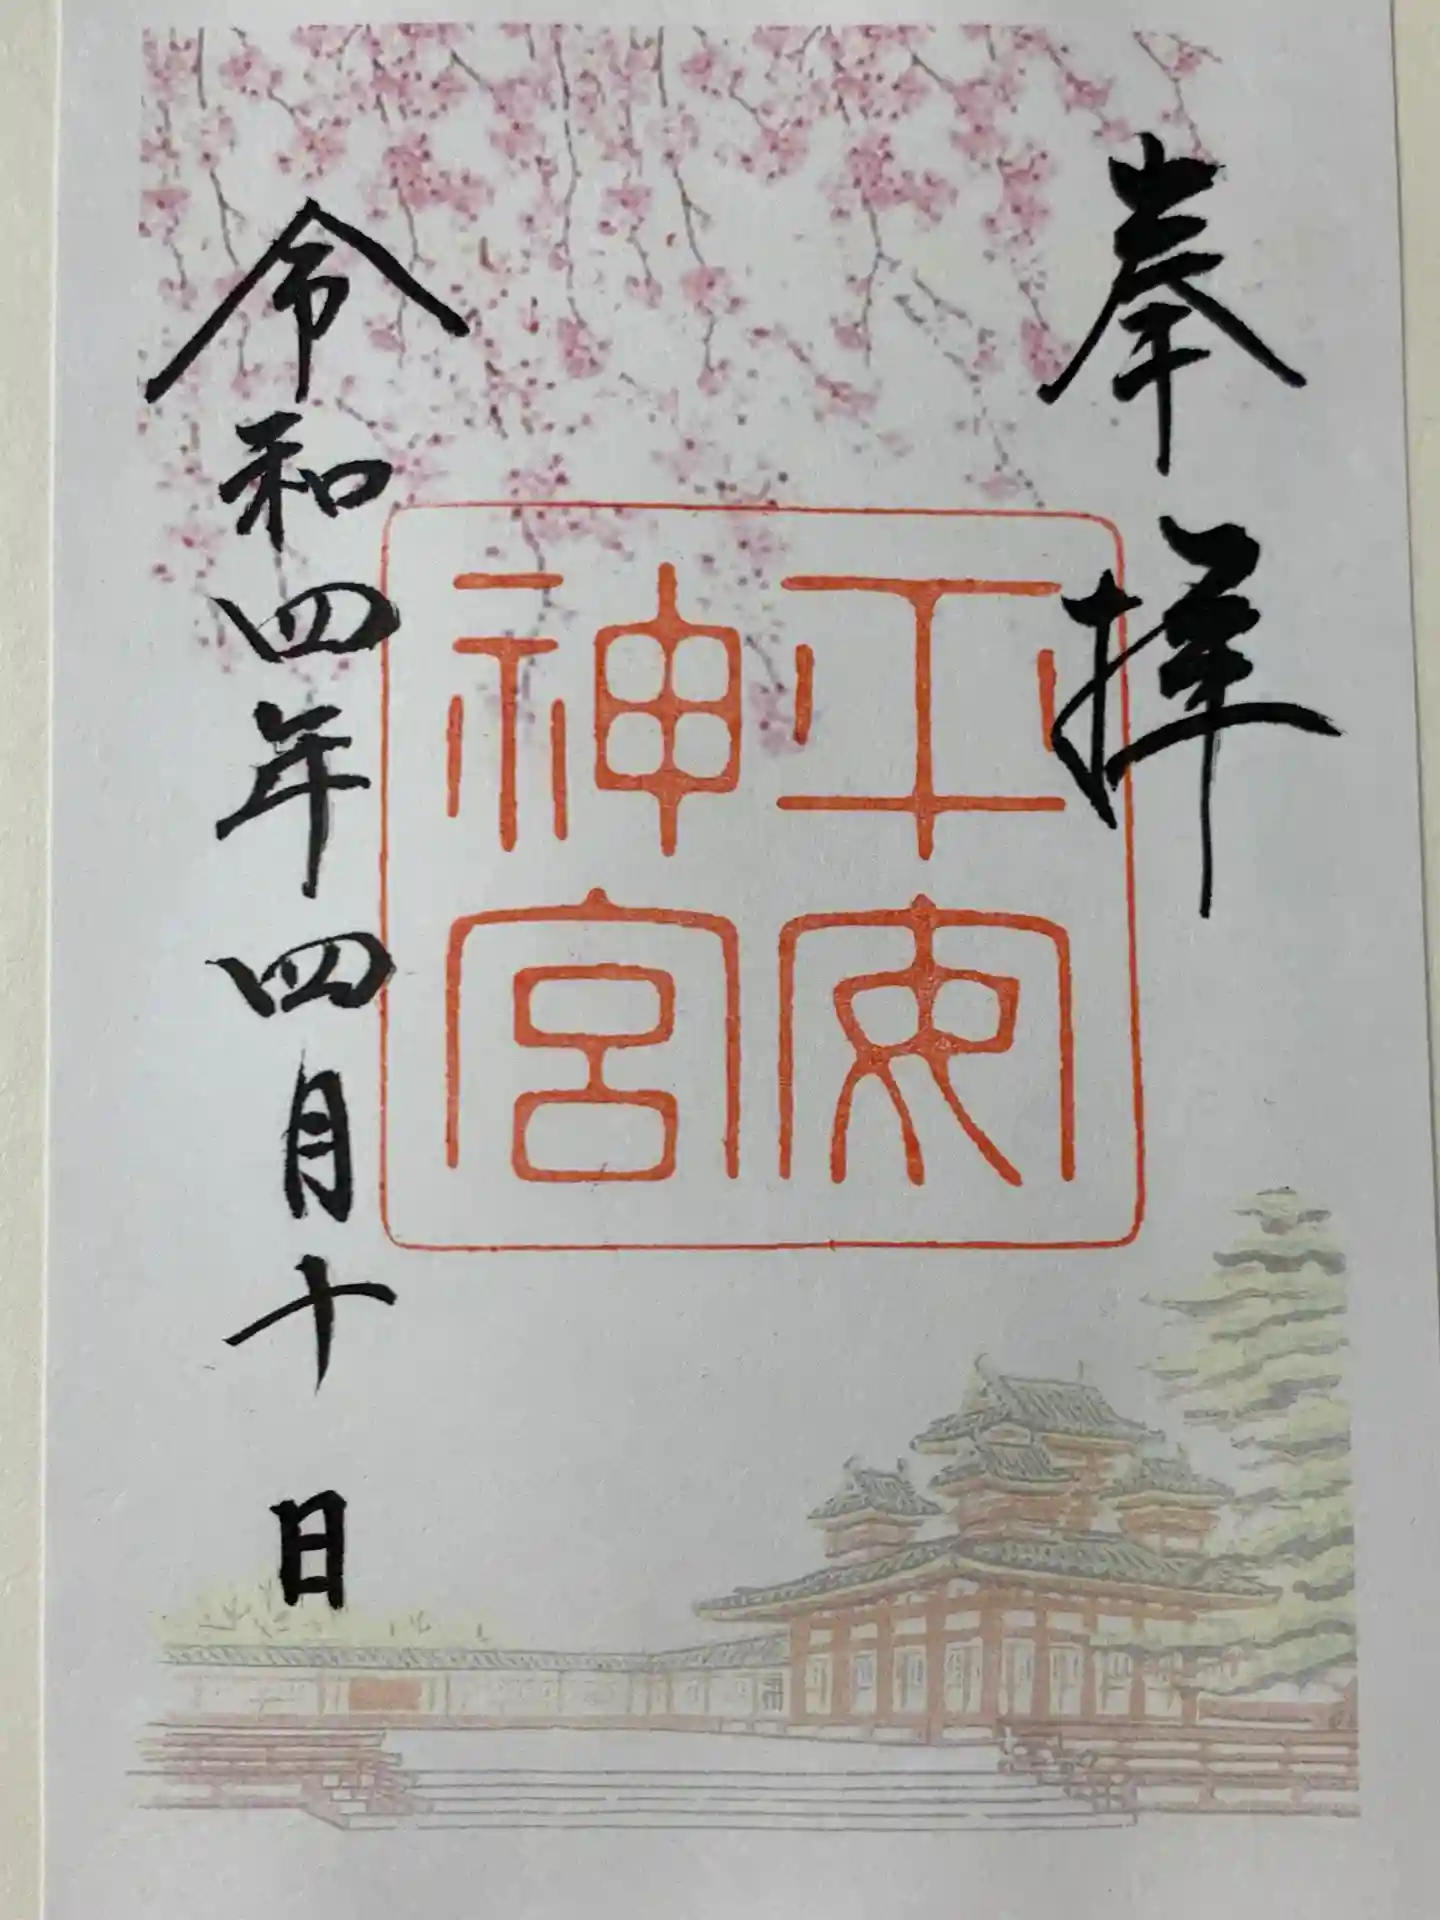 奉拝
平安神宮
令和四年四月十日